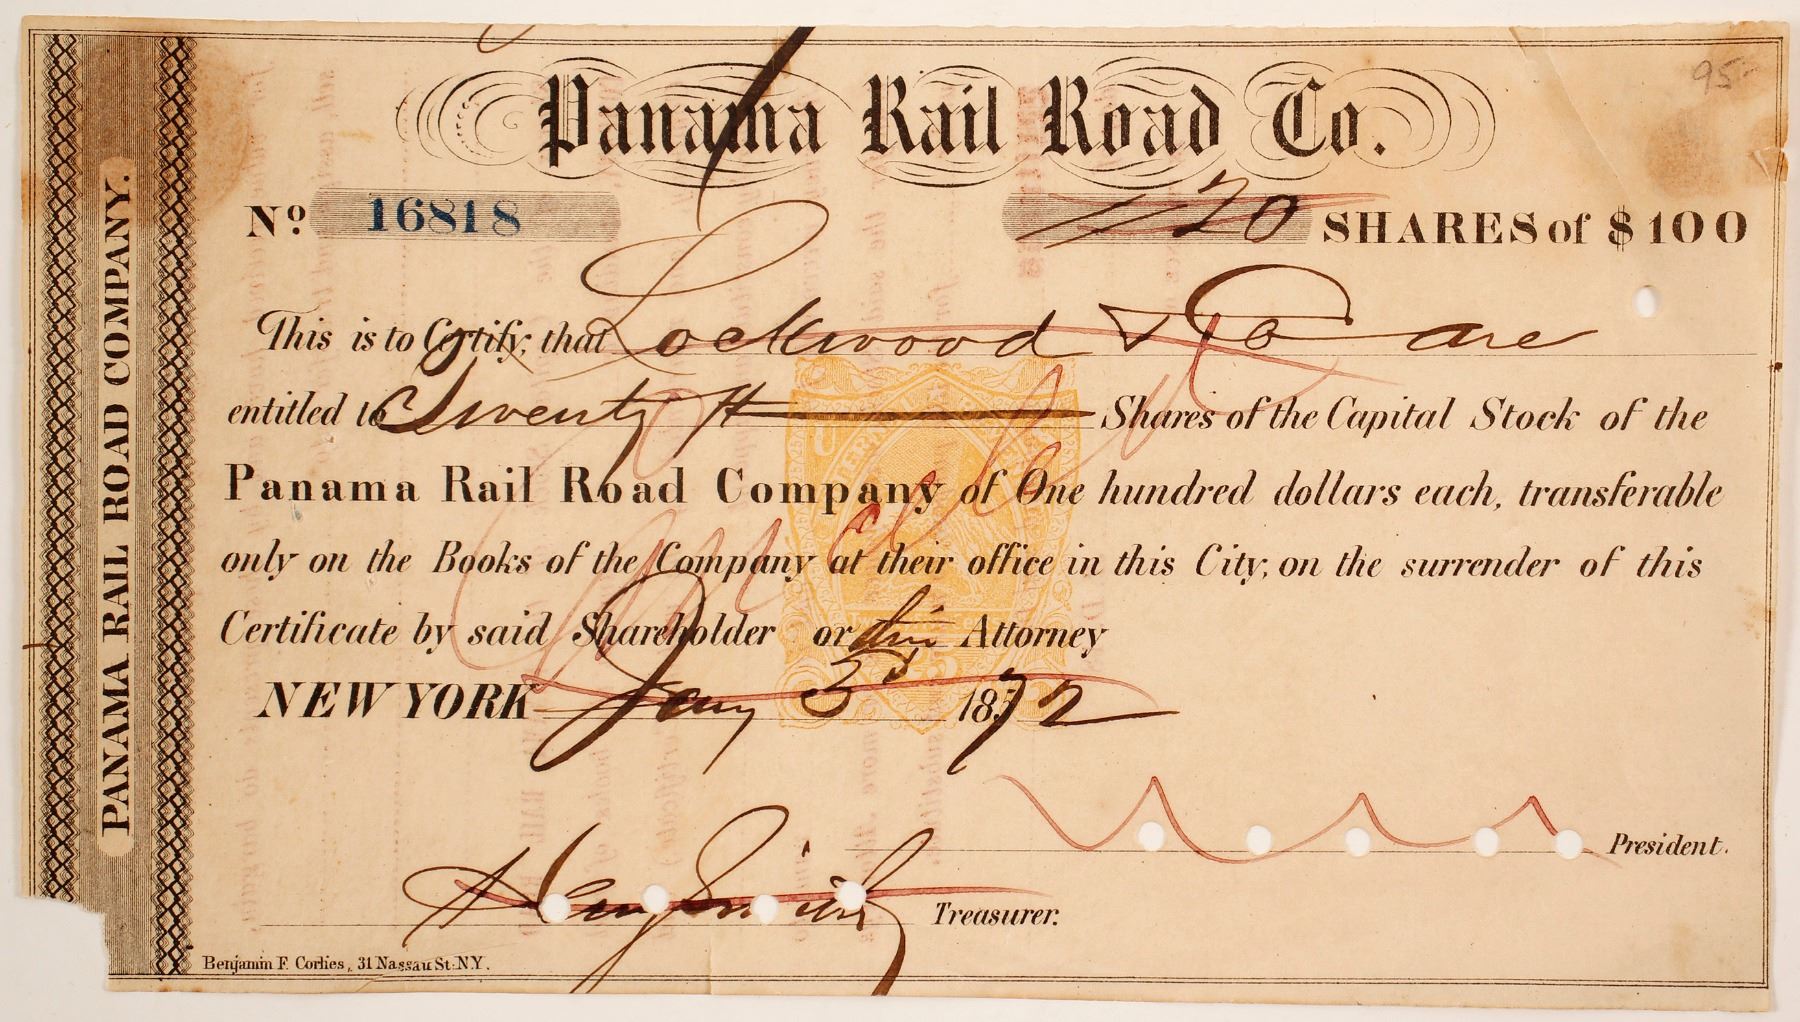 95-
Panama Rail Road Co.
No. 16818 // 20 SHARES of $100
This is to Certify, that Lockwood & Co are
entitled to Twenty Shares of the Capital Stock of the
Panama Rail Road Company of One hundred dollars each, transferable
only on the Books of the Company at their office in this City, on the surrender of this
Certificate by said Shareholder or their Attorney
NEW YORK Jany 3d 1872
President.
Henry Smith Treasurer.
Benjamin F. Corlies, 31 Nassau St. N.Y.
PANAMA RAIL ROAD COMPANY.
Cancelled